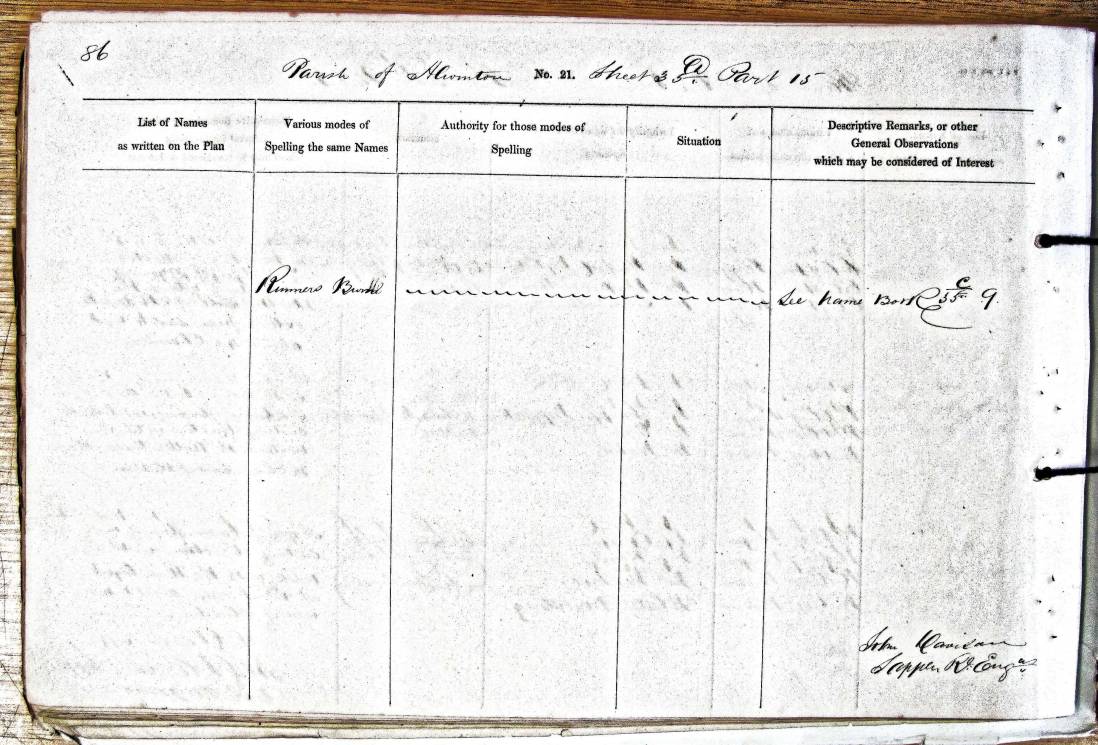 86
Parish of Alwinton No. 21. Sheet 35 Part 15
List of Names
as written on the Plan
Various modes of
Spelling the same Names
Authority for those modes of
Spelling
Situation
Descriptive Remarks, or other
General Observations
which may be considered of Interest
Rimmers Burn See Name Book C 35 9.
John Davison
Sapper Rl. Engrs